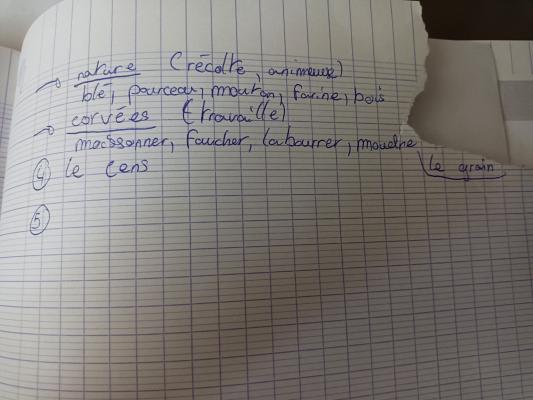 → nature (récolte, animeuse)
blé, pourceau, mouton, farine, bois
→ corvées (travaille)
maissonner, faucher, labourrer, moudre le grain
④ le cens
⑤